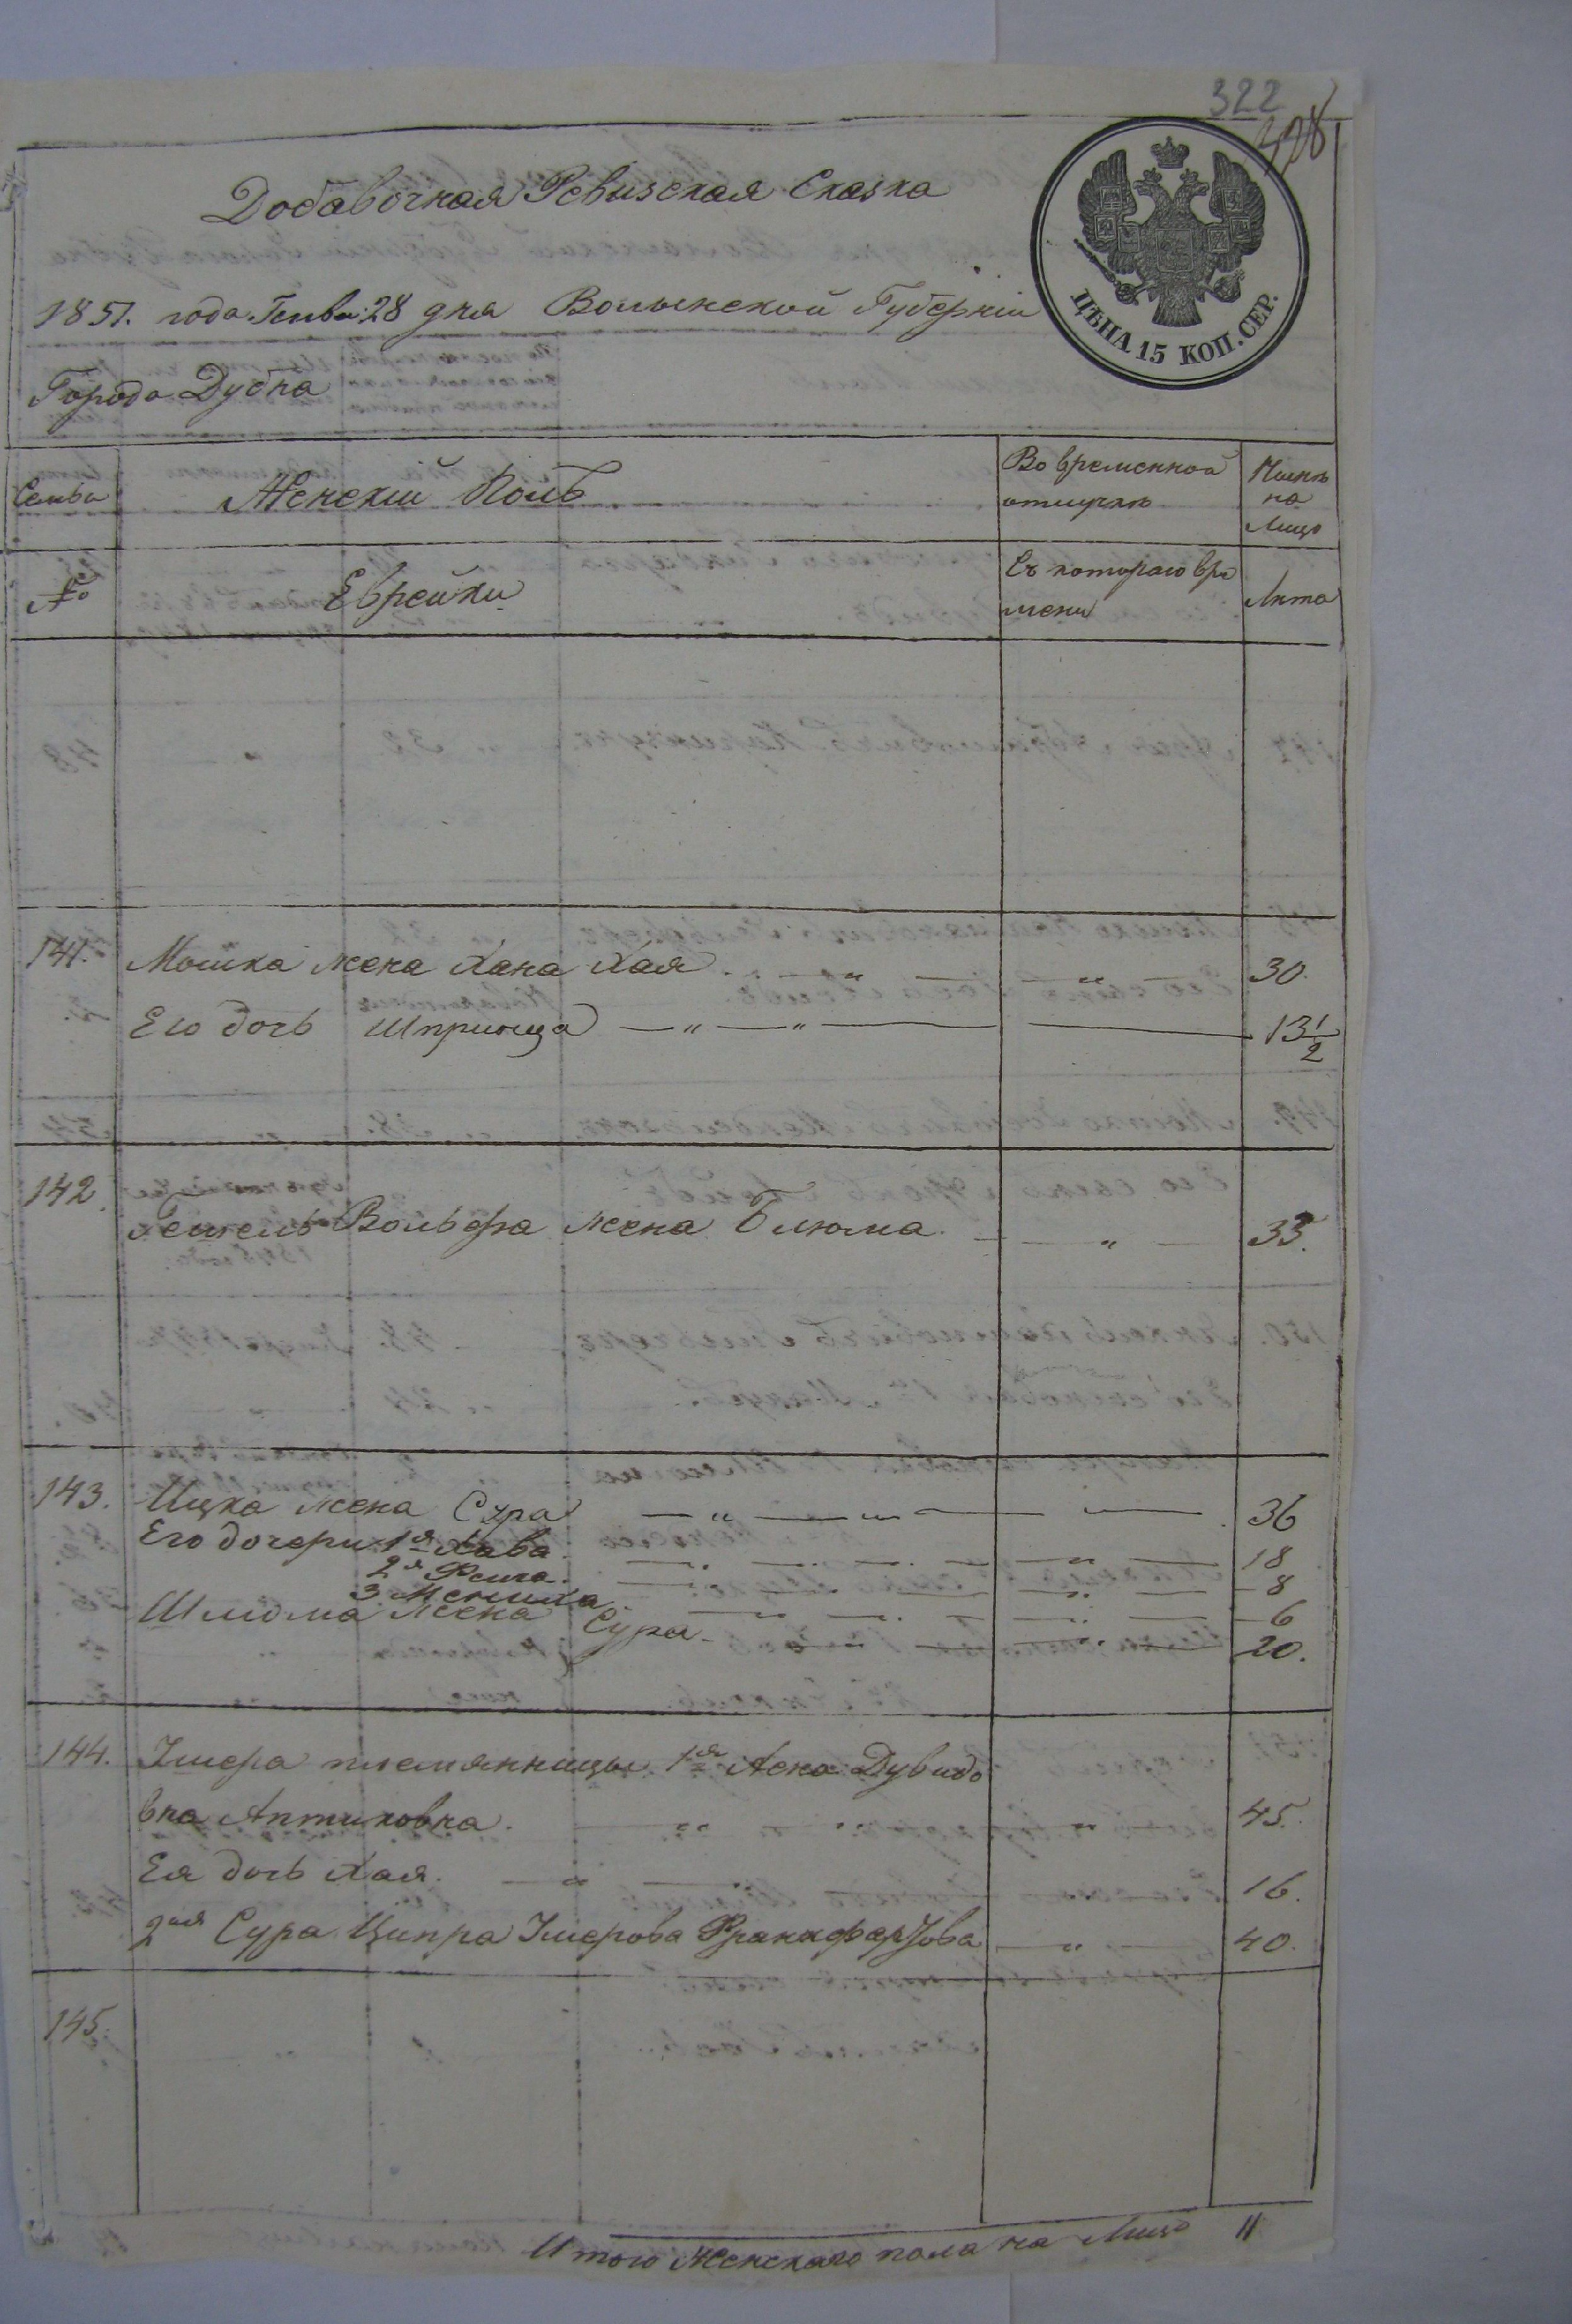 322
408
Добавочная Ревизская Сказка
1851. года Генва: 28 дня Волынской Губерніи
Города Дубна
ЦѢНА 15 КОП. СЕР.
Семьи
Женскій Полъ
Во временной отлучкѣ
Нынѣ на Лицо
№
Еврейки
Съ котораго времени
Лѣта
141. Мошка жена Хана Хая 30.
Его дочь Шпринца 13 1/2
142. Гешель Вольфа жена Блюма 33.
143. Ицка жена Сура 36
Его дочери 1я Хава 18
2я Рейза 8
3 Мениха 6
Шлиома жена Сура 20.
144. Імера племянницы 1я Асна Дувидо
вна Аптиковна. 45.
Ея дочь Хая. 16.
2ая Сура Ципра Імерова Франкфортова 40.
145.
Итого Женскаго пола на Лицо 11